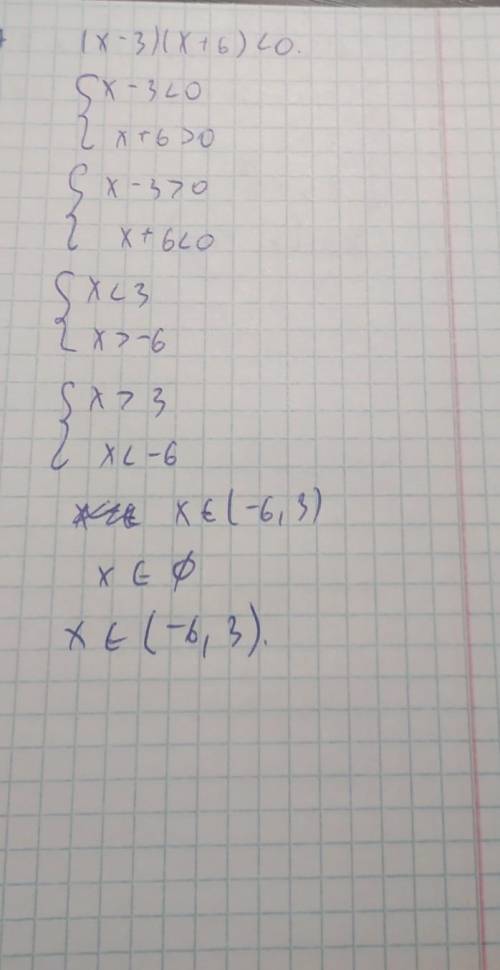 (x-3)(x+6)<0.
{x-3<0
x+6>0
{x-3>0
x+6<0
{x<3
x>-6
{x>3
x<-6
x∈(-6,3)
x∈∅
x∈(-6,3).